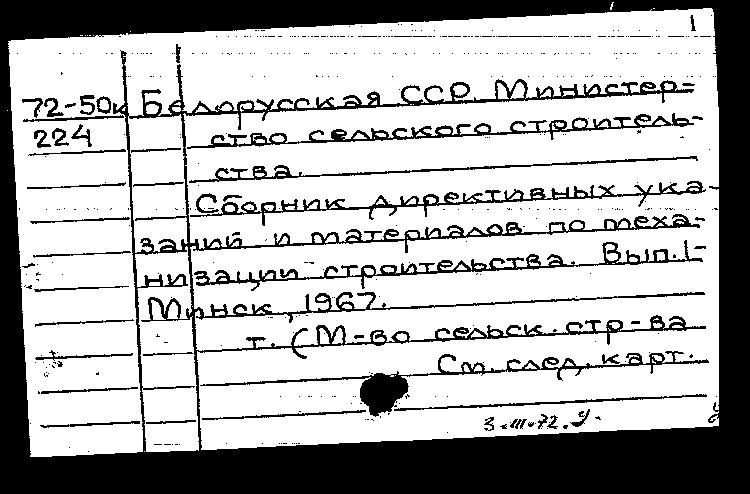 1
72-50к Белорусская ССР. Министер-
224 ство сельского строитель-
ства.
Сборник директивных ука-
заний и материалов по меха-
низации строительства. Вып.1-
Минск, 1967.
т. (М-во сельск. стр-ва
См. след. карт.
3.III.72.